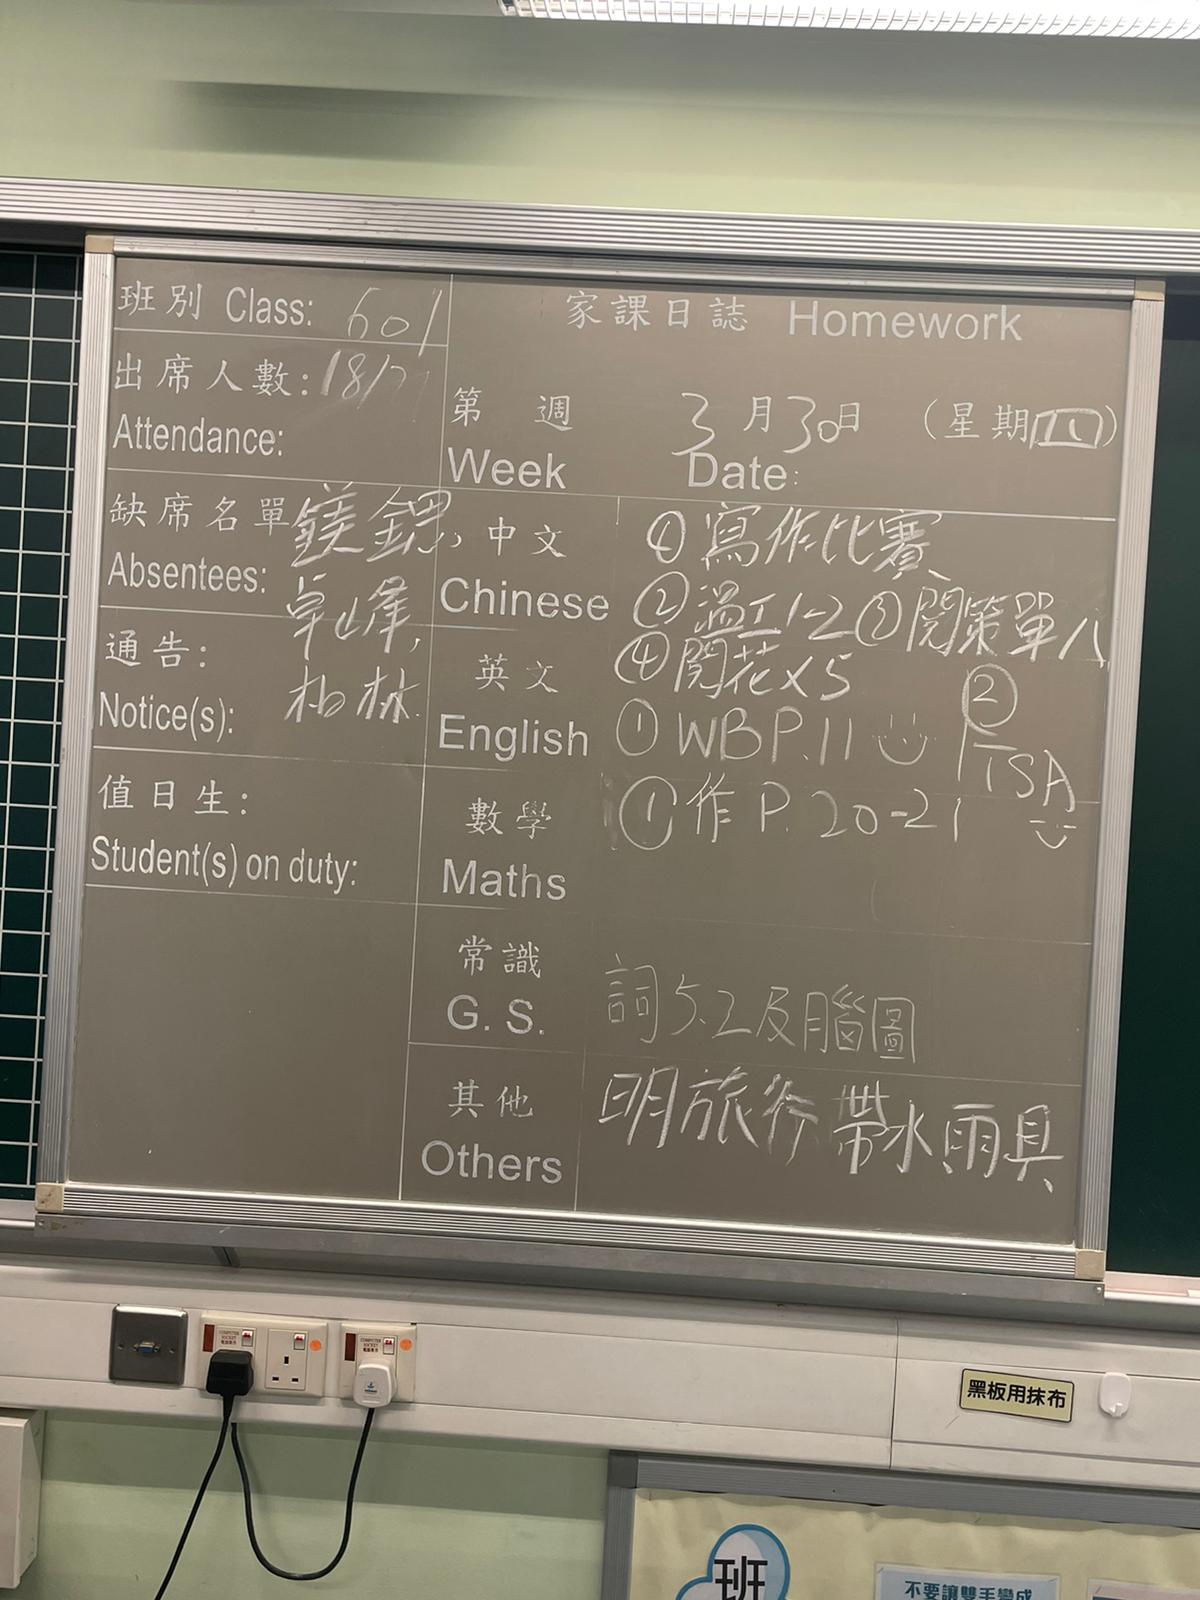 班別 Class: 601
家課日誌 Homework
出席人數: 18/
Attendance:
第 週 3月30日 (星期四)
Week Date:
缺席名單
Absentees:
卓峰,
柏林
通告:
Notice(s):
值日生:
Student(s) on duty:
中文
Chinese
① 寫作比賽
② 溫工1-2 ③ 閱策單八
④ 閱花x5
英文
English
① WB P.11 ②
TSA
數學
Maths
① 作 P. 20-21
常識
G. S.
詞5.2及腦圖
其他
Others
明旅行 帶水 雨具
COMPUTER SOCKET
COMPUTER SOCKET
黑板用抹布
班
不要讓雙手變成